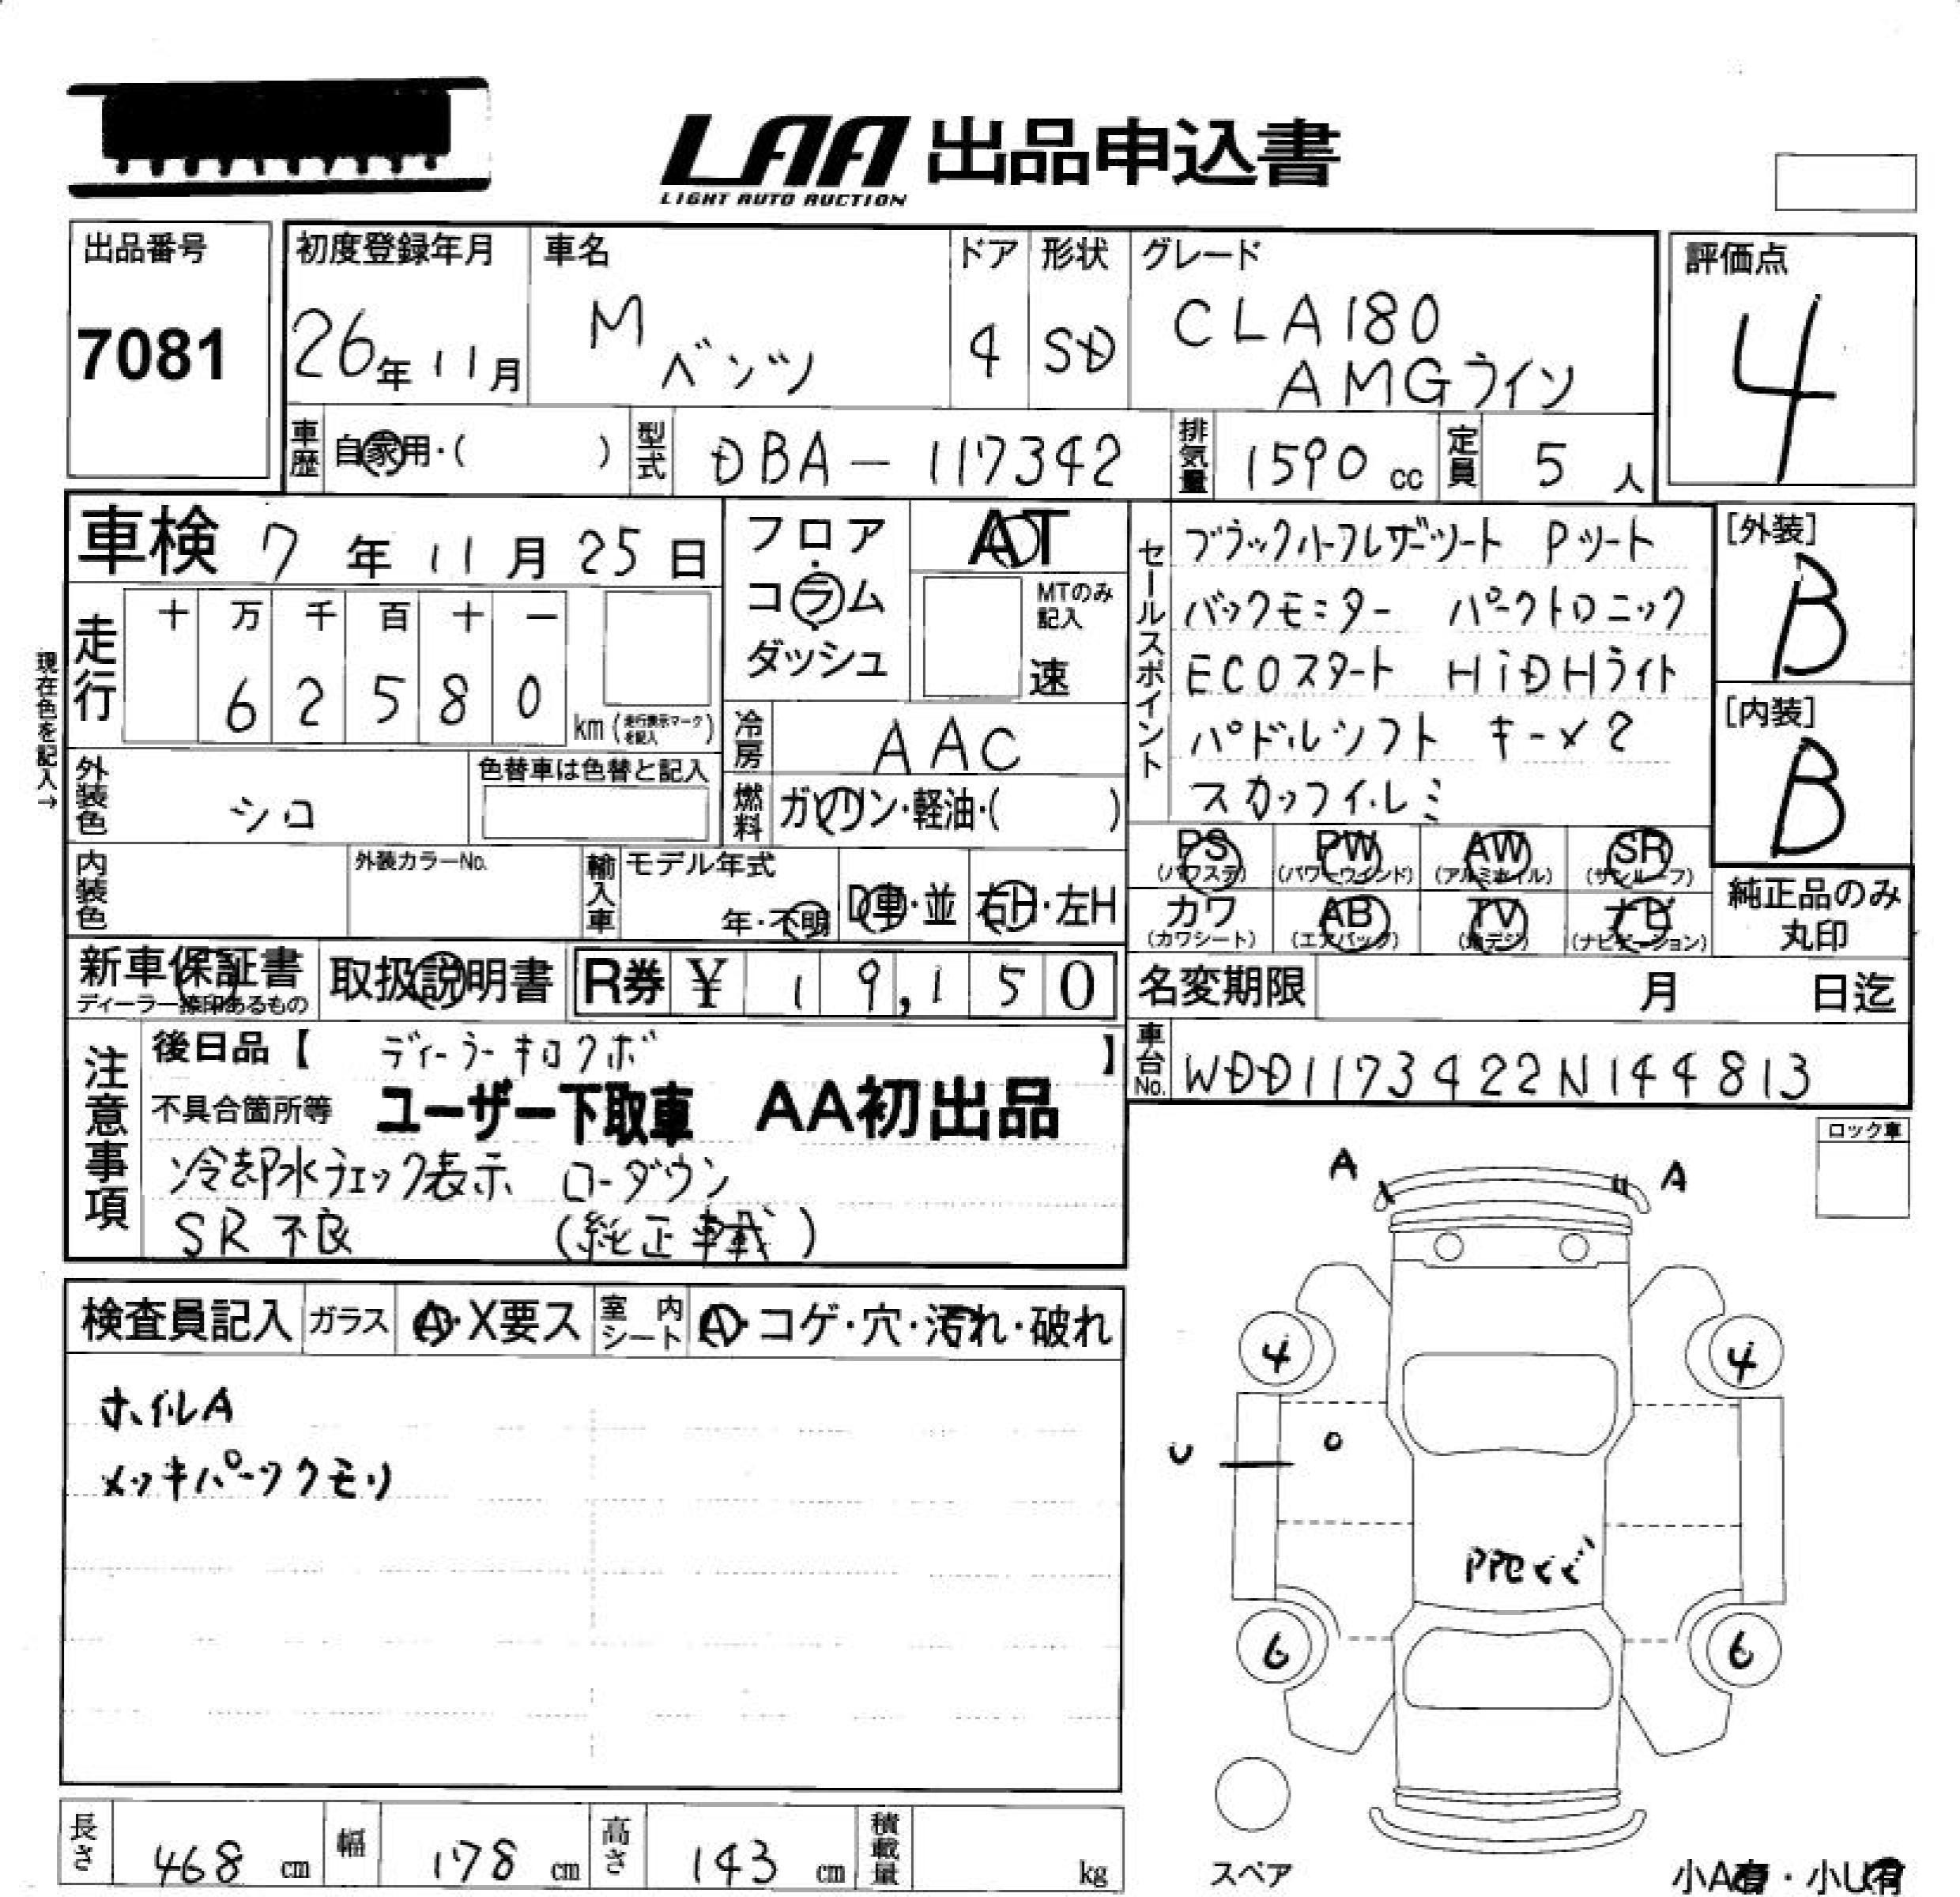 LAA 出品申込書
LIGHT AUTO AUCTION
出品番号
7081
初度登録年月
26年11月
車名
M
ベンツ
ドア
4
形状
SD
グレード
CLA180
AMGライン
評価点
4
車歴
自家用・( )
型式
DBA-117342
排気量
1590 cc
定員
5 人
車検 7年11月25日
フロア・
コラム
ダッシュ
AT
MTのみ
記入
速
現在色を記入→
走行
十 万 千 百 十 一
6 2 5 8 0
km (走行表示マークを記入)
冷房
AAC
外装色
シロ
色替車は色替と記入
燃料
ガソリン・軽油・( )
内装色
外装カラーNo.
輸入車
モデル年式
年・不明
D車・並
右H・左H
セールスポイント
ブラックハーフレザーシート Pシート
バックモニター パークトロニック
ECOスタート HiDHライト
パドルシフト キー×2
スカッフイルミ
[外装]
B
[内装]
B
PS
(パワステ)
PW
(パワーウインド)
AW
(アルミホイル)
SR
(サンルーフ)
カワ
(カワシート)
AB
(エアバッグ)
TV
(地デジ)
ナビ
(ナビゲーション)
純正品のみ
丸印
新車保証書
ディーラー捺印あるもの
取扱説明書
R券 ¥ 19,150
名変期限 月 日迄
車台No.
WDD1173422N144813
注意事項
後日品【 ディーラーキロクボ 】
不具合箇所等 ユーザー下取車 AA初出品
冷却水チェック表示 ローダウン
SR不良 (純正車載)
ロック車
検査員記入
ガラス
A・X要ス
室内
シート
A・コゲ・穴・汚れ・破れ
ホイルA
メッキパーツクモリ
A
A
4
4
U
6
6
スペア
小A有・小U有
長さ
468 cm
幅
178 cm
高さ
143 cm
積載量
kg